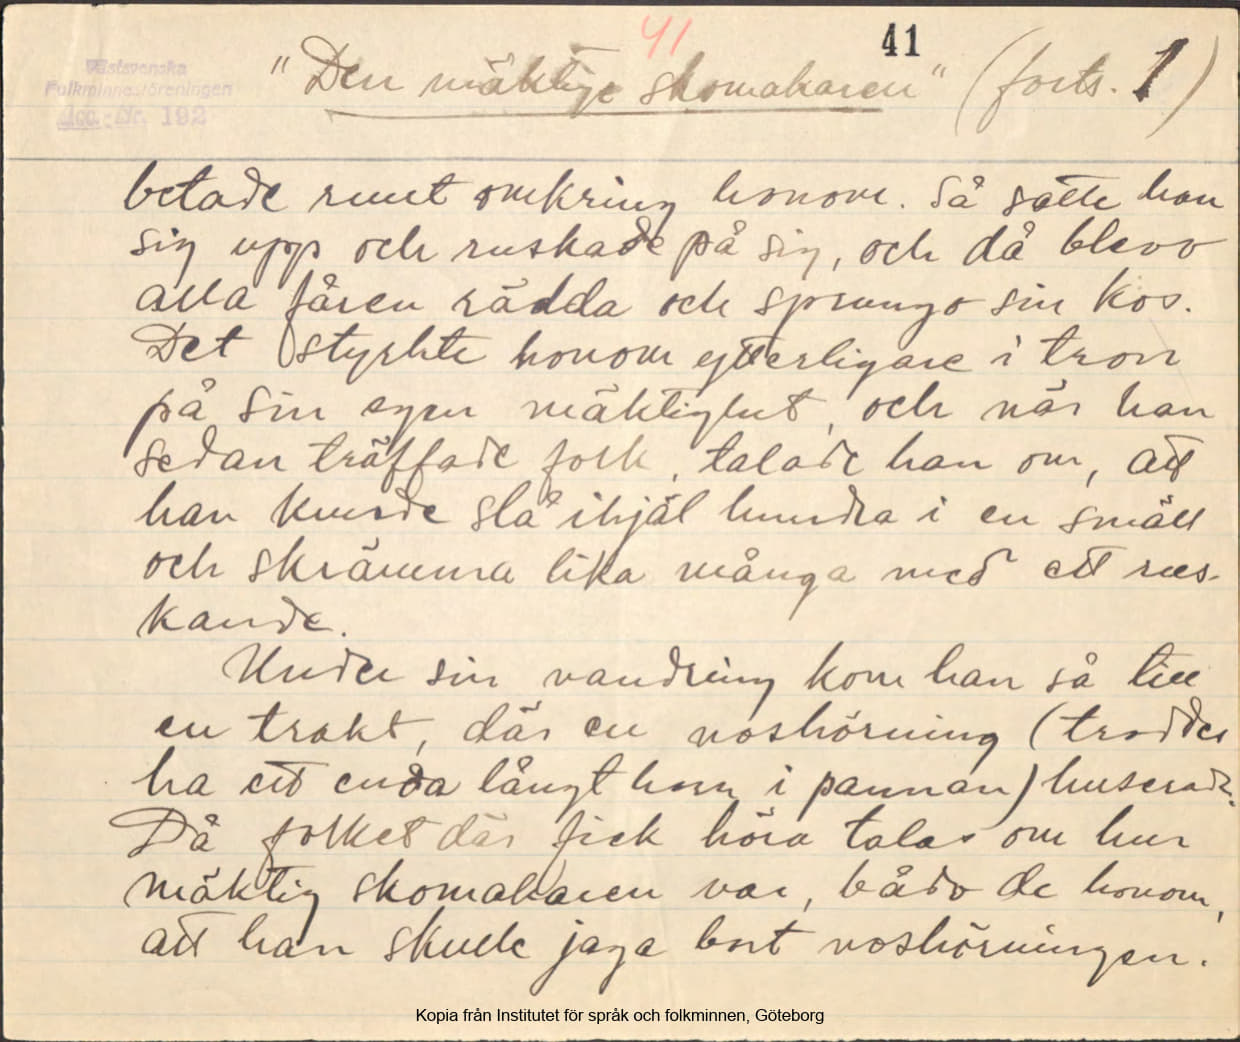 41
41
Västsvenska
Folkminnesföreningen
Acc.-Nr. 192
"Den mäktige skomakaren" (forts. 1)
betade runt omkring honom. Så satte han
sig upp och ruskade på sig, och då blevo
alla fåren rädda och sprungo sin kos.
Det styrkte honom ytterligare i tron
på sin egen mäktighet, och när han
sedan träffade folk, talade han om, att
han kunde slå ihjäl hundra i en smäll
och skrämma lika många med ett rus-
kande.
Under sin vandring kom han så till
en trakt, där en noshörning (troddes
ha ett enda långt horn i pannan) huserade.
Då folket där fick höra talas om hur
mäktig skomakaren var, bådo de honom,
att han skulle jaga bort noshörningen.
Kopia från Institutet för språk och folkminnen, Göteborg